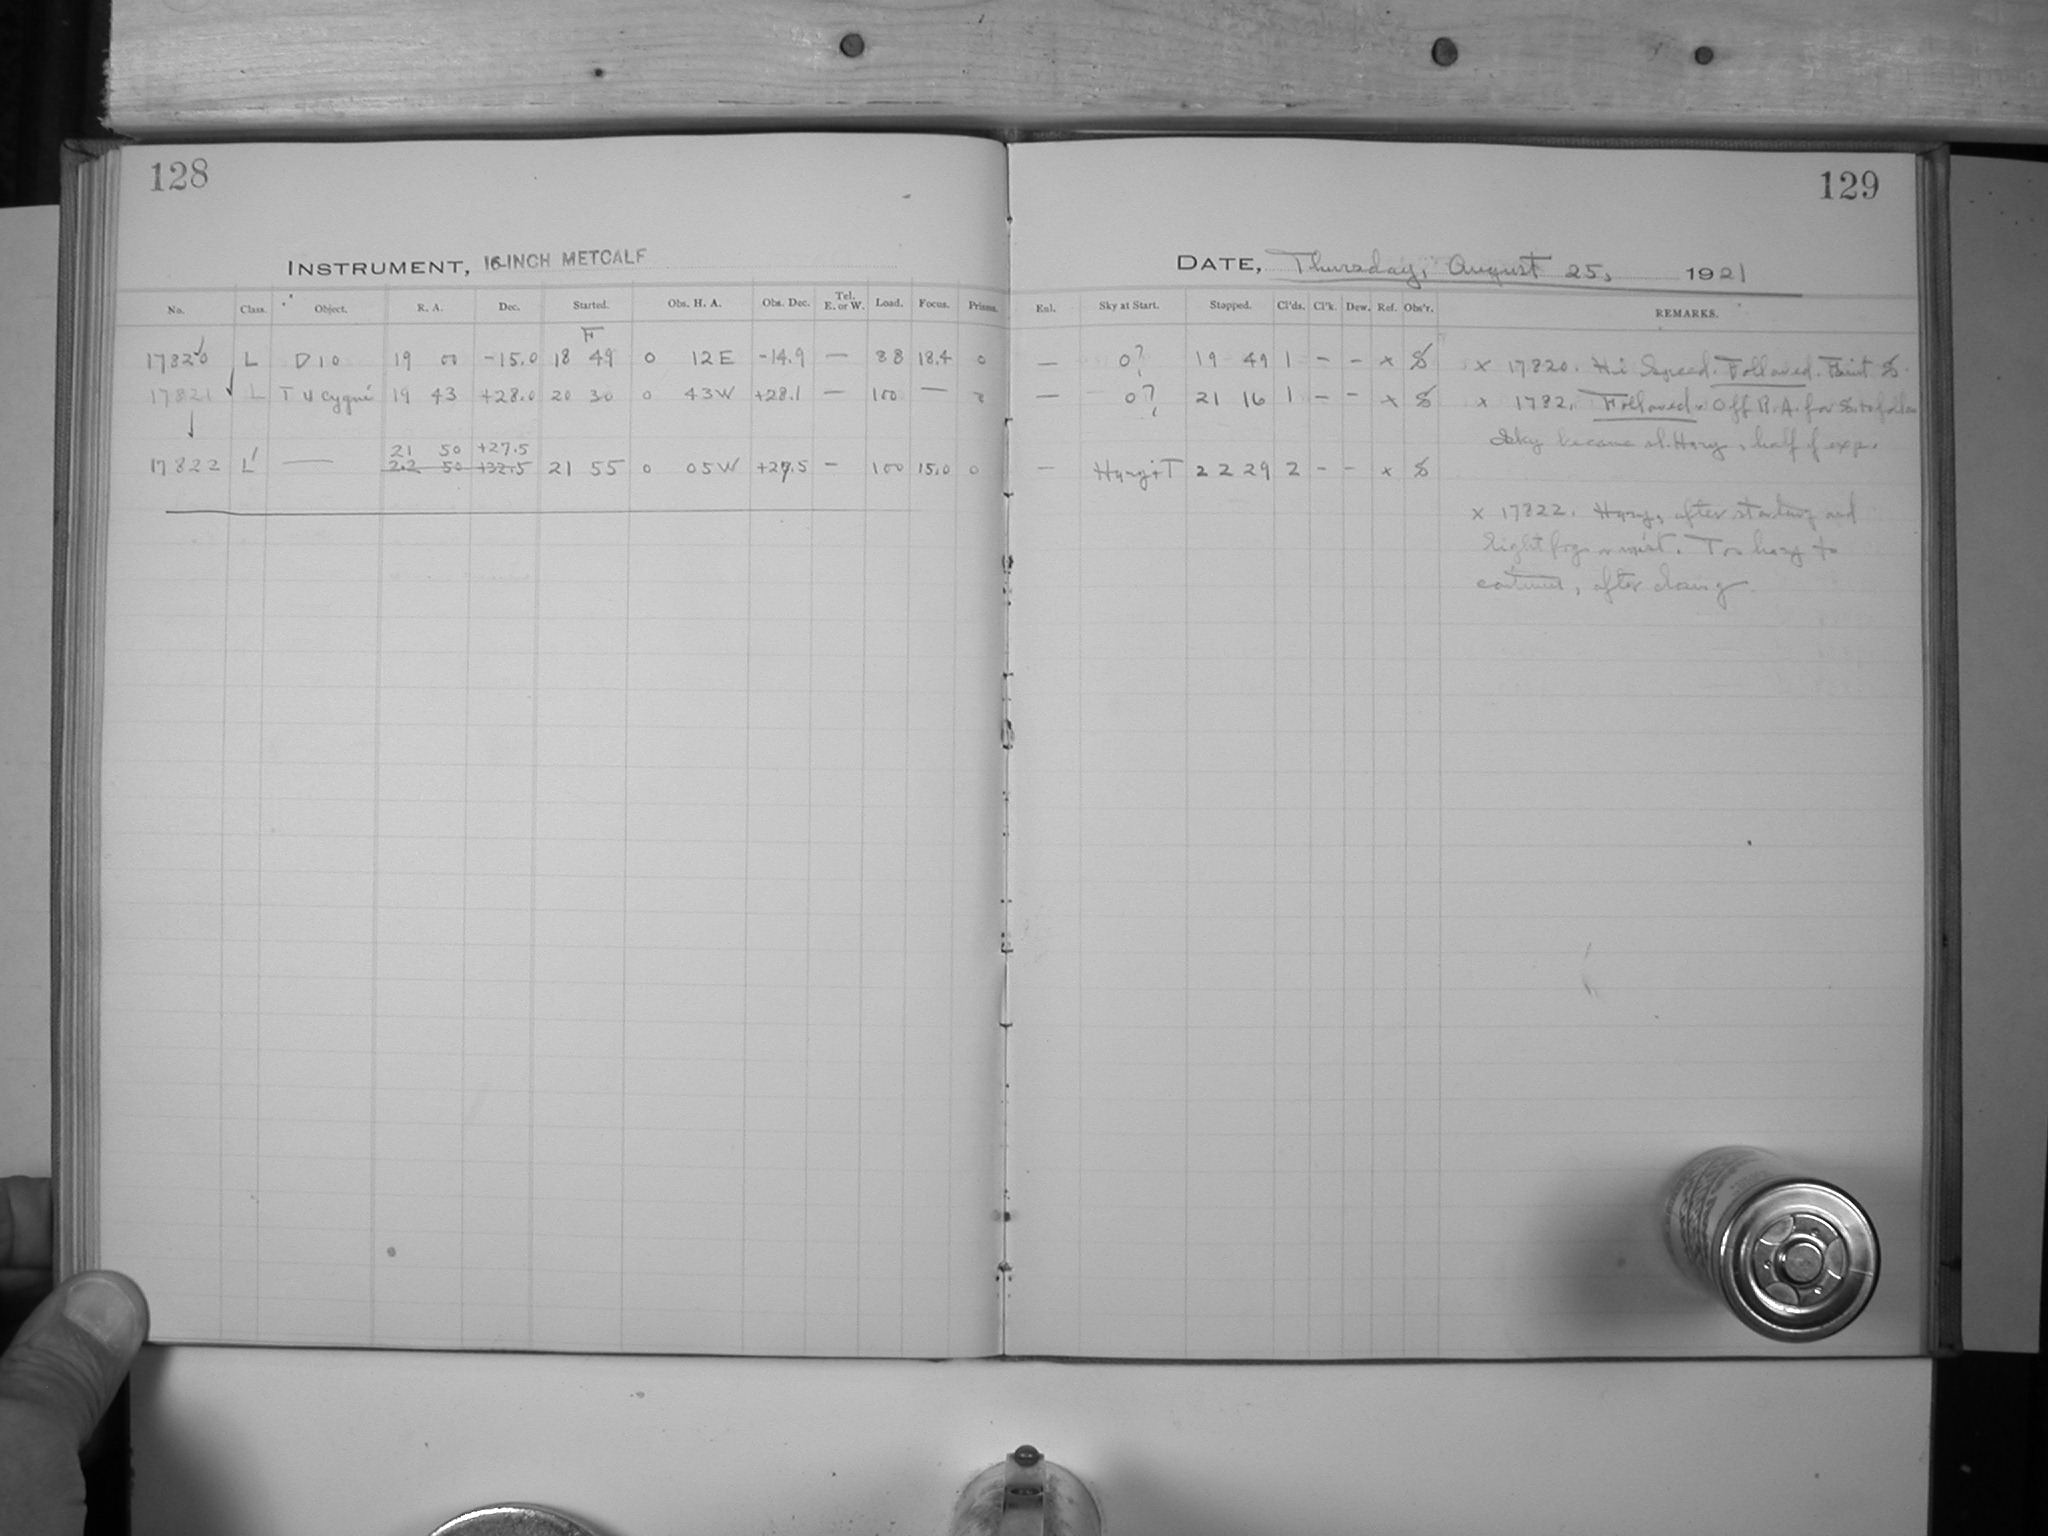 128
129
INSTRUMENT, 16-INCH METCALF
DATE, Thursday, August 25, 1921
No. Class. Object. R. A. Dec. Started. Obs. H. A. Obs. Dec. Tel. E. or W. Load. Focus. Prisms. Enl. Sky at Start. Stopped. Cl'ds. Cl'k. Dew. Ref. Obs'r. REMARKS.
F
17820 L D10 19 00 -15.0 18 49 0 12E -14.9 — 88 18.4 0 — 0? 19 49 1 - - x x 17820. Followed. Faint
17821 L TU Cygni 19 43 +28.0 20 30 0 43W +28.1 — 100 — — 0? 21 16 1 - - x x 1782. Followed. Off R.A. for
Sky became sl. Hazy, half of exp.
21 50 +27.5
17822 L' — 22 50 +32.5 21 55 0 05W +27.5 — 100 15.0 0 — Hazy+T 22 29 2 - - x
x 17822. Hazy, after starting and
light fog or mist. Too hazy to
continue, after closing